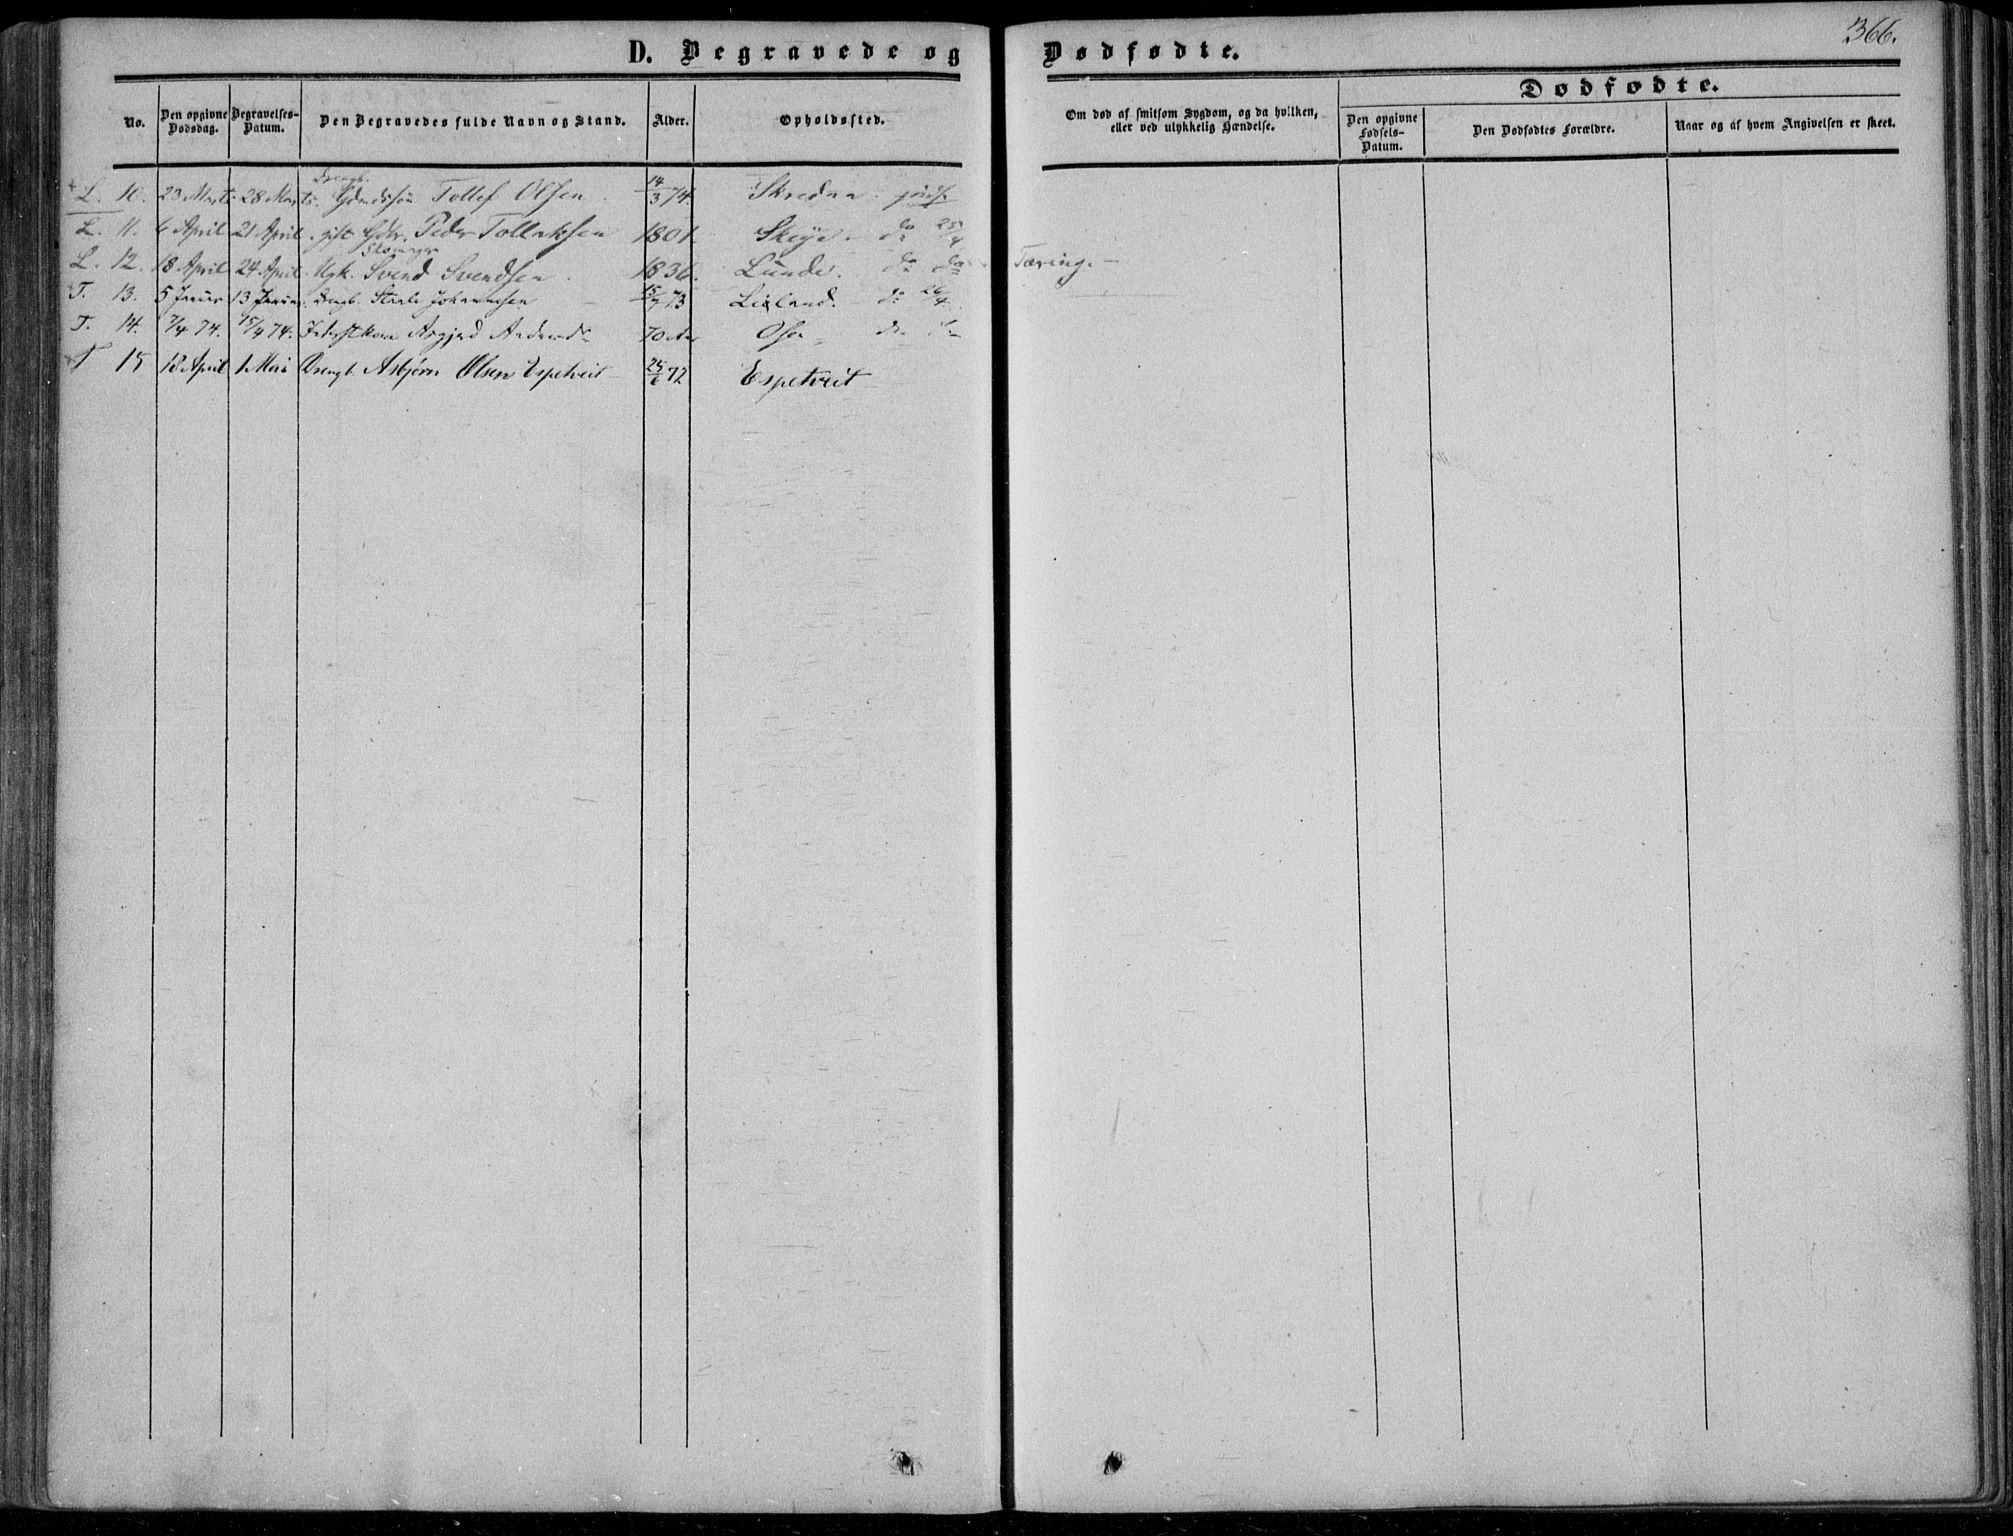 366.
D. Begravede og Dødfødte.
No. Den opgivne Dødsdag. Begravelses-Datum. Den Begravedes fulde Navn og Stand. Alder. Opholdssted. Om død af smitsom Sygdom, og da hvilken, eller ved ulykkelig Hændelse.
Dødfødte.
Den opgivne Fødsels-Datum. Den Dødfødtes Forældre. Naar og af hvem Angivelsen er skeet.
Drengb.
L. 10. 23 Marts 28 Marts. Tollef Olsen 14/3 74. Skredaa
L. 11. 6 April 21 April gift Peder Tollaksen 1801. Skeije. do 25/4
L. 12. 18 April 24 April Ugk. Svend Svendsen 1836. Lunde. do do Tæring.
T. 13. 5 Januar 13 Januar Drengb. Staale Johannesen 15/7 73 Lieland. do 26/4
T. 14. 7/4 74. 15/4 74. Asgjerd 70 Aar
T 15 18 April 1 Mai Drengb. Asbjørn Olsen Espetveit 25/6 72 Espetveit